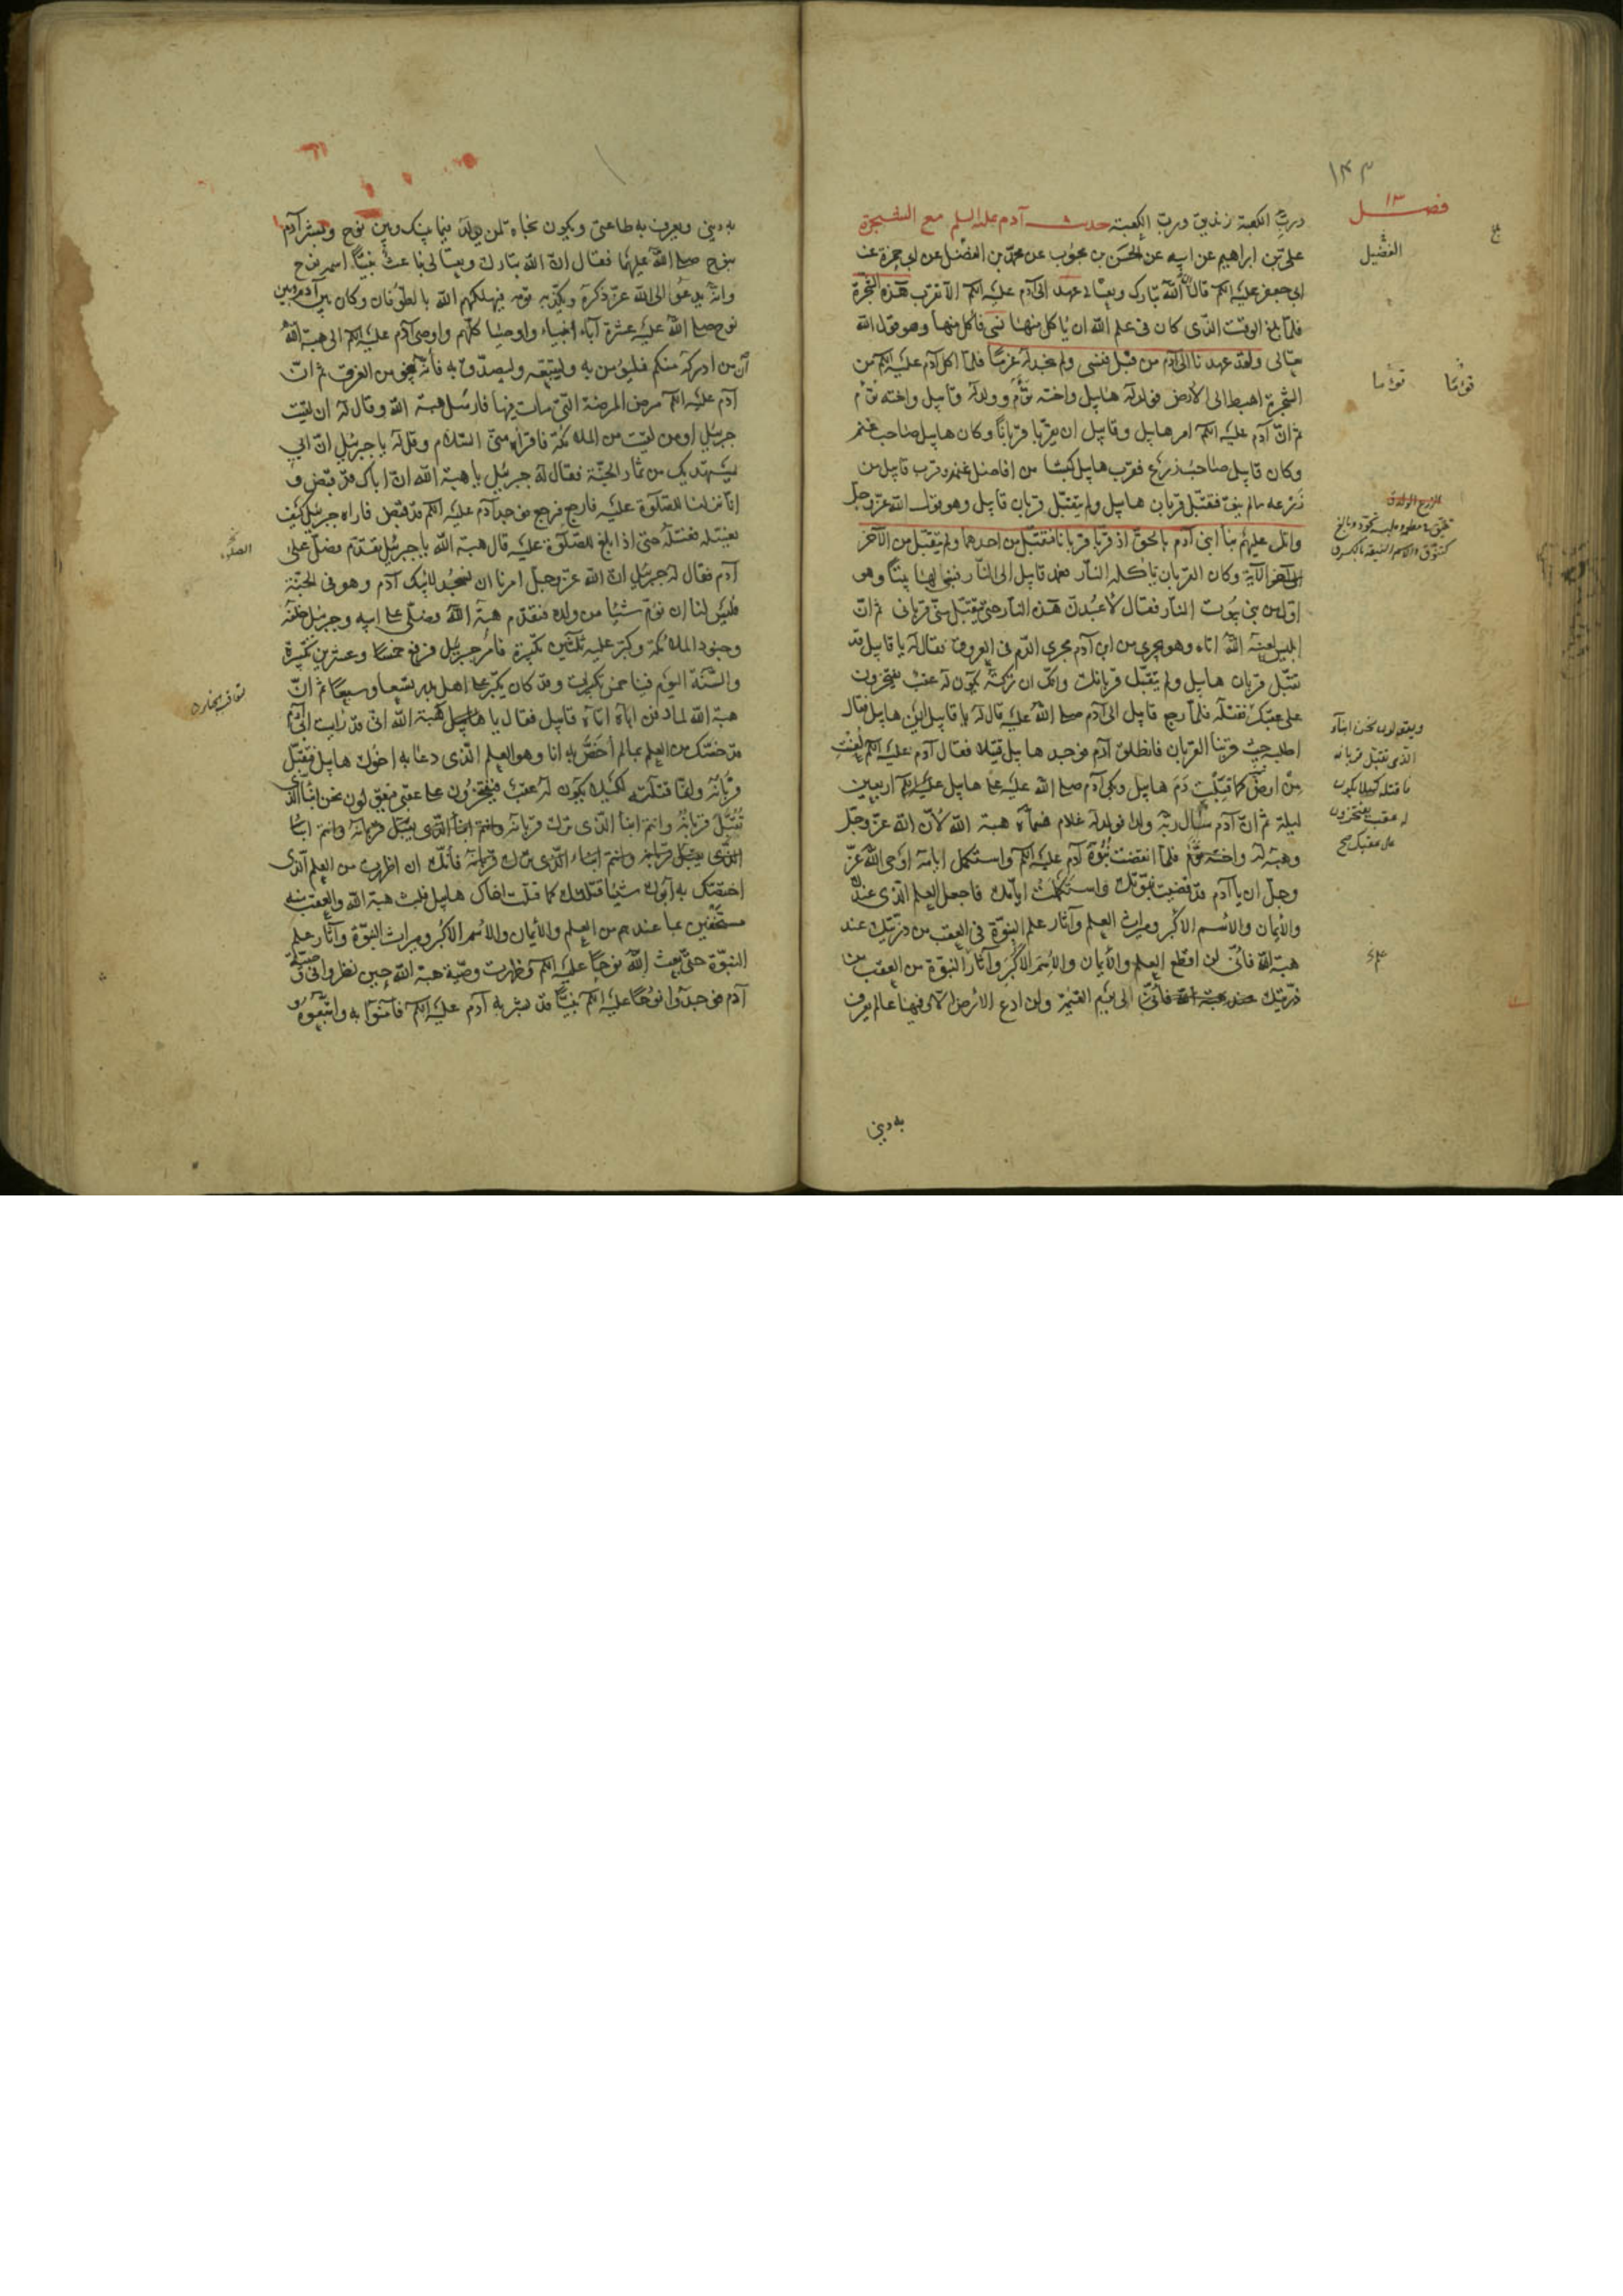 ١٤٣
ورب الكعبة زنديق ورب الكعبة حديث آدم عليه السلم مع الشجرة
على بن ابراهيم عن ابيه عن الحسن بن محبوب عن محمد بن الفضل عن ابى حمزة عن
ابى جعفر عليه السلم قال ان الله تبارك وتعالى عهد الى آدم عليه السلم الا تقرب هذه الشجرة
فلما بلغ الوقت الذى كان فى علم الله ان ياكل منها نسى فاكل منها وهو قول الله
تعالى ولقد عهدنا الى آدم من قبل فنسى ولم نجد له عزما فلما اكل آدم عليه السلم من
الشجرة اهبط الى الارض فولد له هابيل واخته توأم وولد له قابيل واخته توأم
ثم ان آدم عليه السلم امر هابيل وقابيل ان يقربا قربانا وكان هابيل صاحب غنم
وكان قابيل صاحب زرع فقرب هابيل كبشا من افاضل غنمه وقرب قابيل من
زرعه مالم ينق فتقبل قربان هابيل ولم يتقبل قربان قابيل وهو قول الله عز وجل
واتل عليهم نبأ ابنى آدم بالحق اذ قربا قربانا فتقبل من احدهما ولم يتقبل من الآخر
الى آخر الآية وكان القربان تاكله النار فعمد قابيل الى النار فبنى لها بيتا وهو
اول من بنى بيوت النار فقال لاعبدن هذه النار حتى تتقبل منى قربانى ثم ان
ابليس لعنه الله اتاه وهو يجرى من ابن آدم مجرى الدم فى العروق فقال له يا قابيل قد
تقبل قربان هابيل ولم يتقبل قربانك وانك ان تركته يكون له عقب يفتخرون
على عقبك فقتله فلما رجع قابيل الى آدم صلى الله عليه قال له يا قابيل اين هابيل فقال
اطلبه حيث قربنا القربان فانطلق آدم فوجد هابيل قتيلا فقال آدم عليه السلم لعنت
من ارض كما قبلت دم هابيل وبكى آدم صلى الله عليه على هابيل عليه السلم اربعين
ليلة ثم ان آدم سأل ربه ولدا فولد له غلام فسماه هبة الله لان الله عز وجل
وهبه له واخته توأم فلما انقضت نبوة آدم عليه السلم واستكمل ايامه اوحى الله عز
وجل ان يا آدم قد قضيت نبوتك واستكملت ايامك فاجعل العلم الذى عندك
والايمان والاسم الاكبر وميراث العلم وآثار علم النبوة فى العقب من ذريتك عند
هبة الله فانى لن اقطع العلم والايمان والاسم الاكبر وآثار النبوة من العقب من
ذريتك عند هبة الله فانى الى يوم القيمة ولن ادع الارض الا وفيها عالم يعرف
به دينى
فصل ١٣
الفضيل
توءما
توءما
ويقولون نحن ابناء
الذى تقبل قربانه
فاقتله كيلا يكون
له عقب يفتخرون
على عقبك صح
علم
به دينى ويعرف به طاعتى ويكون نجاة لمن يولد فيما بينك وبين نوح وبشر آدم
بنوح صلى الله عليهما فقال ان الله تبارك وتعالى باعث نبيا اسمه نوح
وانه يدعو الى الله عز ذكره ويكذبه قومه فيهلكهم الله بالطوفان وكان بين آدم وبين
نوح صلى الله عليه عشرة آباء انبياء واوصياء كلهم واوصى آدم عليه السلم الى هبة الله
ان من ادركه منكم فليؤمن به وليتبعه وليصدق به فانه ينجو من الغرق ثم ان
آدم عليه السلم مرض المرضة التى مات فيها فارسل هبة الله وقال له ان لقيت
جبرئيل او من لقيت من الملائكة فاقرأه منى السلام وقل له يا جبرئيل ان ابى
يستهديك من ثمار الجنة فقال له جبرئيل يا هبة الله ان اباك قد قبض و
انا نزلنا للصلوة عليه فارجع فرجع فوجد آدم عليه السلم قد قبض فاراه جبرئيل كيف
يغسله فغسله حتى اذا بلغ للصلوة عليه قال هبة الله يا جبرئيل تقدم فصل على
آدم فقال له جبرئيل ان الله عز وجل امرنا ان نسجد لابيك آدم وهو فى الجنة
فليس لنا ان نؤم شيئا من ولده فتقدم هبة الله وصلى على ابيه وجبرئيل خلفه
وجنود الملائكة وكبر عليه ثلثين تكبيرة فامر جبرئيل فرفع خمسا وعشرين تكبيرة
والسنة اليوم فينا خمس تكبيرات وقد كان يكبر على اهل بدر تسعا وسبعا ثم ان
هبة الله لما دفن اباه اتاه قابيل فقال يا هبة الله انى قد رايت ابى آدم
قد خصك من العلم بما لم اخص به انا وهو العلم الذى دعا به اخوك هابيل فتقبل
قربانه وانما قتلته لكيلا يكون له عقب فيفتخرون على عقبى فيقولون نحن ابناء الذى
تقبل قربانه وانتم ابناء الذى ترك قربانه وانتم ابناء الذى يقبل قربانه وانتم ابناء
الذى يقبل قربانه وانتم ابناء الذى ترك قربانه فانك ان اظهرت من العلم الذى
اختصك به ابوك شيئا قتلتك كما قتلت اخاك هابيل فلبث هبة الله والعقب منه
مستخفين بما عندهم من العلم والايمان والاسم الاكبر وميراث النبوة وآثار علم
النبوة حتى بعث الله نوحا عليه السلم وظهرت وصية هبة الله حين نظروا فى وصية
آدم فوجدوا نوحا عليه السلم نبيا قد بشر به آدم عليه السلم فآمنوا به واتبعوه و
الصلوة